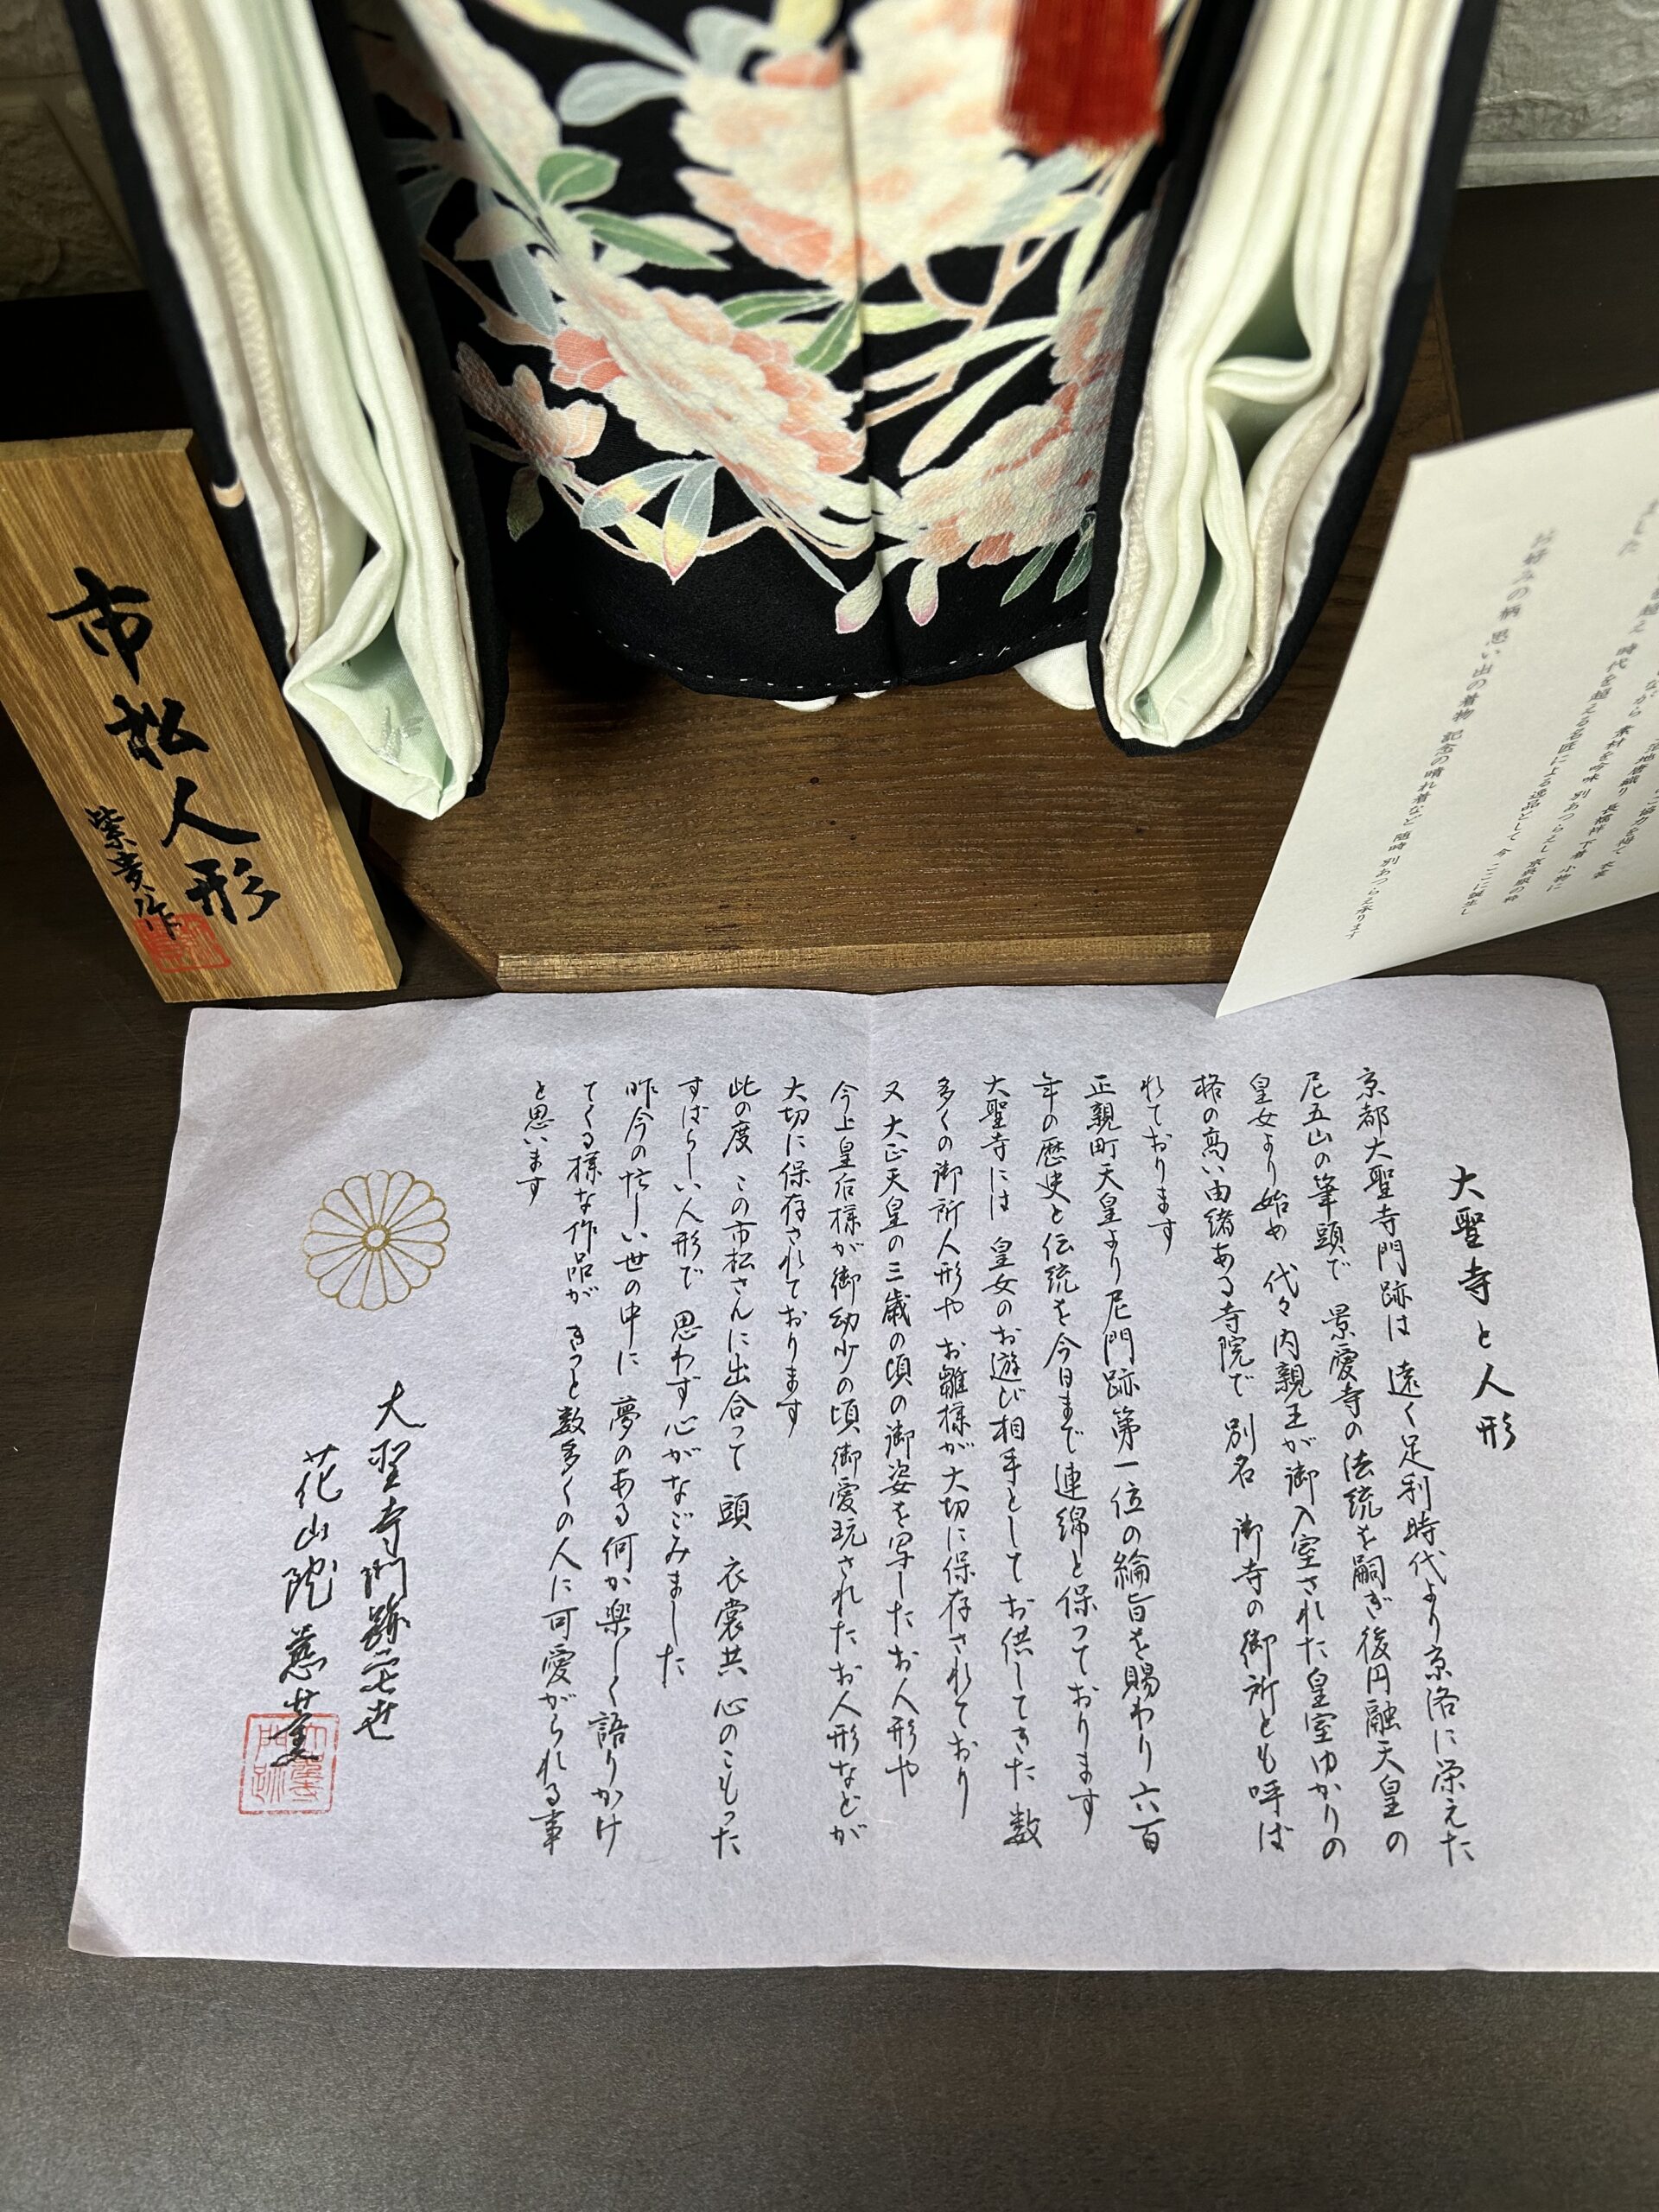 市松人形
紫峯作
大聖寺と人形
京都大聖寺門跡は 遠く足利時代より京洛に栄えた
尼五山の筆頭で 景愛寺の法統を嗣ぎ後円融天皇の
皇女より始め 代々内親王が御入室された皇室ゆかりの
格の高い由緒ある寺院で 別名 御寺の御所とも呼ば
れております
正親町天皇より尼門跡第一位の綸旨を賜わり六百
年の歴史と伝統を今日まで連綿と保っております
大聖寺には 皇女のお遊び相手としてお供してきた 数
多くの御所人形やお雛様が大切に保存されており
又 大正天皇の三歳の頃の御姿を写したお人形や
今上皇后様が御幼少の頃御愛玩されたお人形などが
大切に保存されております
此の度 この市松さんに出合って 頭 衣裳共 心のこもった
すばらしい人形で 思わず心がなごみました
昨今の忙しい世の中に 夢のある何か楽しく語りかけ
てくる様な作品が きっと数多くの人に可愛がられる事
と思います
大聖寺門跡
花山院慈薫
お好みの柄 思い出の着物 記念の晴れ着など 随時 別あつらえ承ります